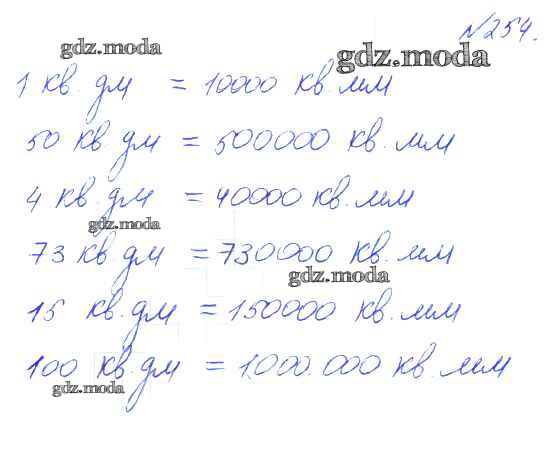 №254.
gdz.moda
gdz.moda
1 кв. дм = 10000 кв.мм
50 кв. дм = 500000 кв. мм
4 кв. дм = 40000 кв. мм
gdz.moda
73 кв. дм = 730000 кв. мм
gdz.moda
15 кв. дм = 150000 кв. мм
100 кв. дм = 1.000.000 кв. мм
gdz.moda